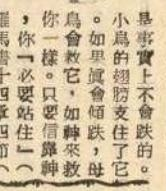 是事實上不會跌的。
小鳥的翅膀支住了它
。如果眞會傾跌，母
鳥會救它，如神來救
你一樣。只要信靠神
，你『必要站住』（
羅馬書十四章四節（